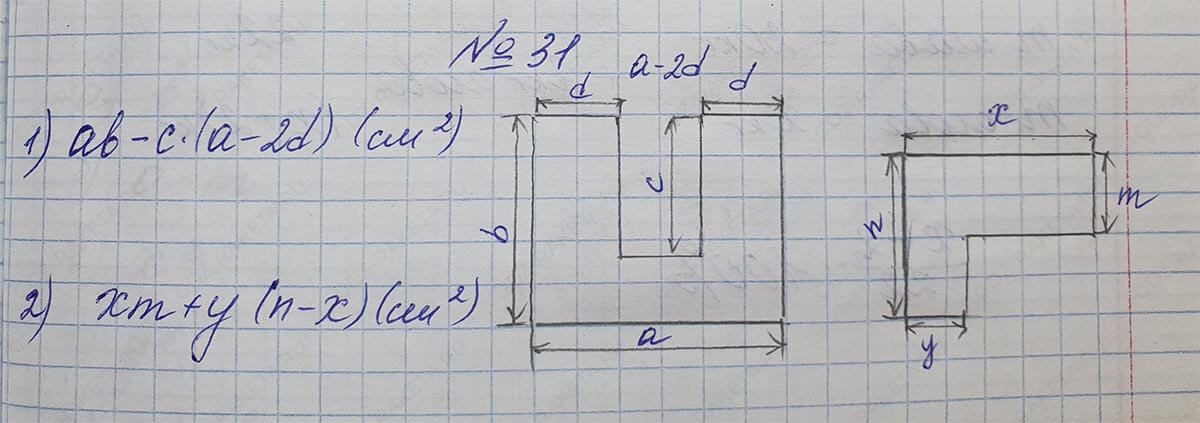 № 31
d a-2d d
1) ab-c·(a-2d) (см²)
b
c
a
x
n
m
y
2) xm+y (n-x)(см²)